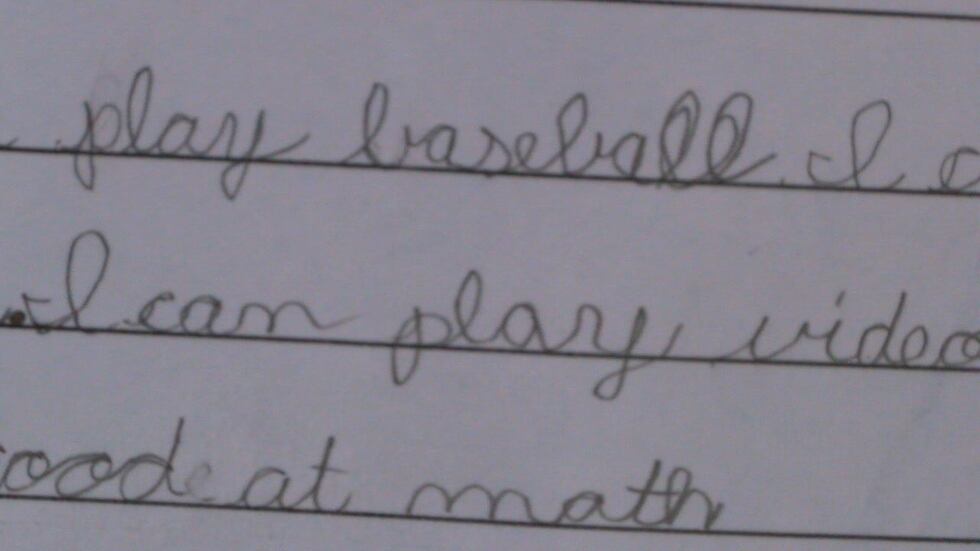 play baseball. I c
I can play video
ood at math